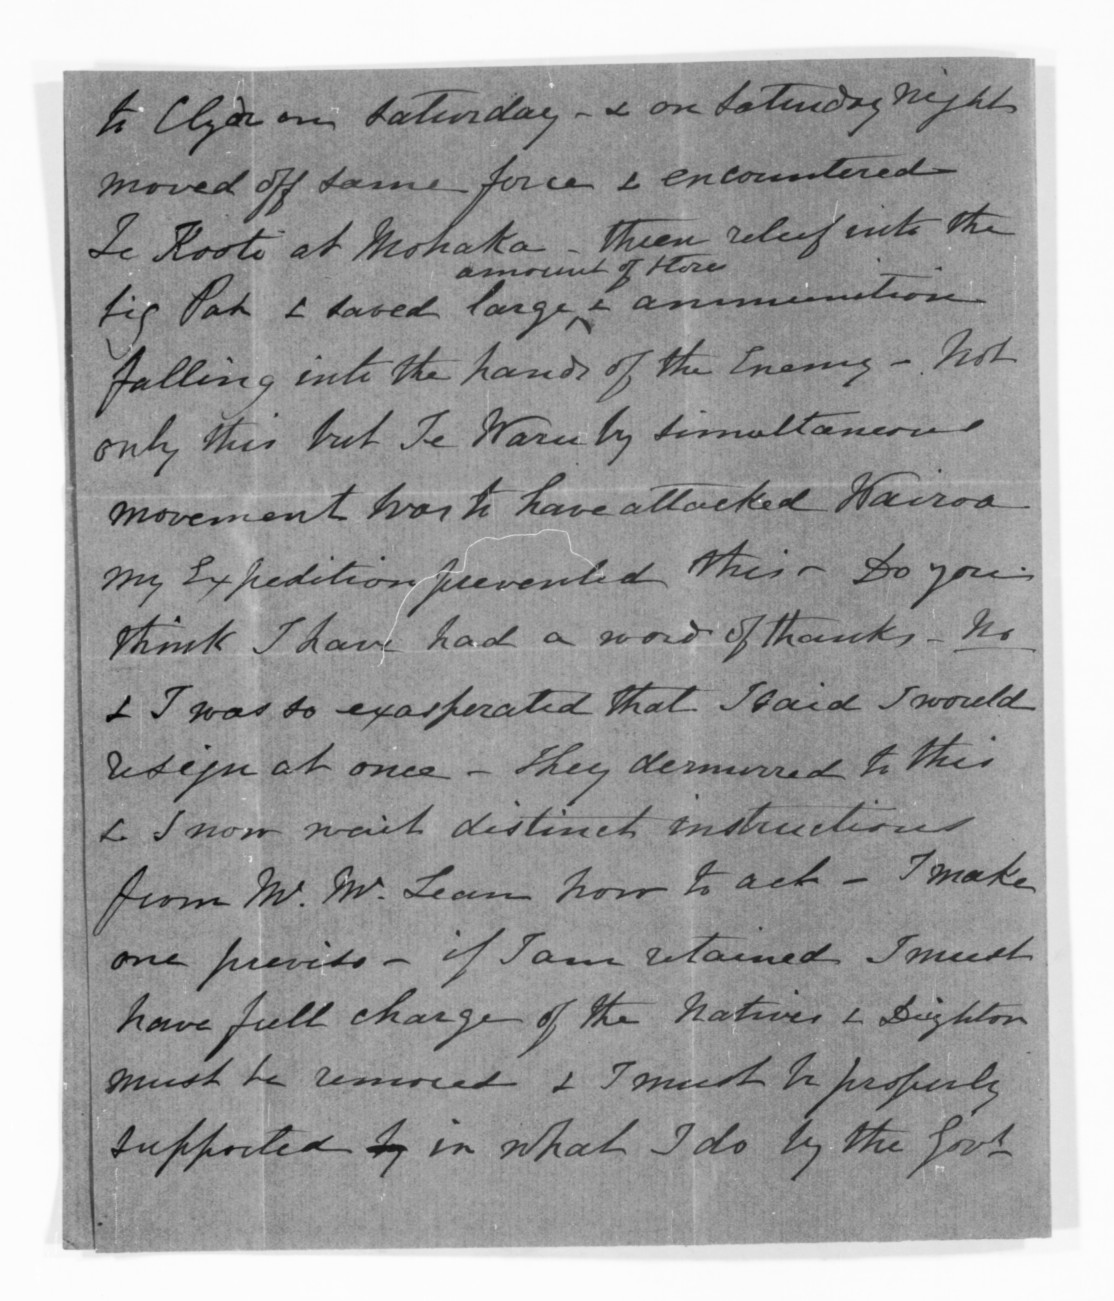 to Clyde on Saturday - & on Saturday Night
moved off same force & encountered
Te Kooti at Mohaka - threw relief into the
amount of store
big Pah & saved large & ammunition
falling into the hands of the Enemy - Not
only this but Te Waru by simultaneous
movement was to have attacked Wairoa
my Expedition prevented this - Do you
think I have had a word of thanks - No
& I was so exasperated that I said I would
resign at once - They demurred to this
& I now wait distinct instructions
from Mr. Mc. Lean how to act - I make
one proviso - if I am retained I must
have full charge of the Natives & Deighton
must be removed & I must be properly
supported by in what I do by the Govt